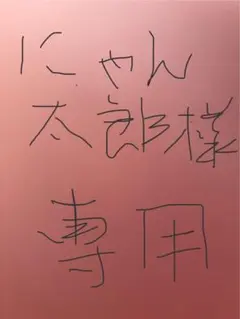 にゃん
太郎様
専用